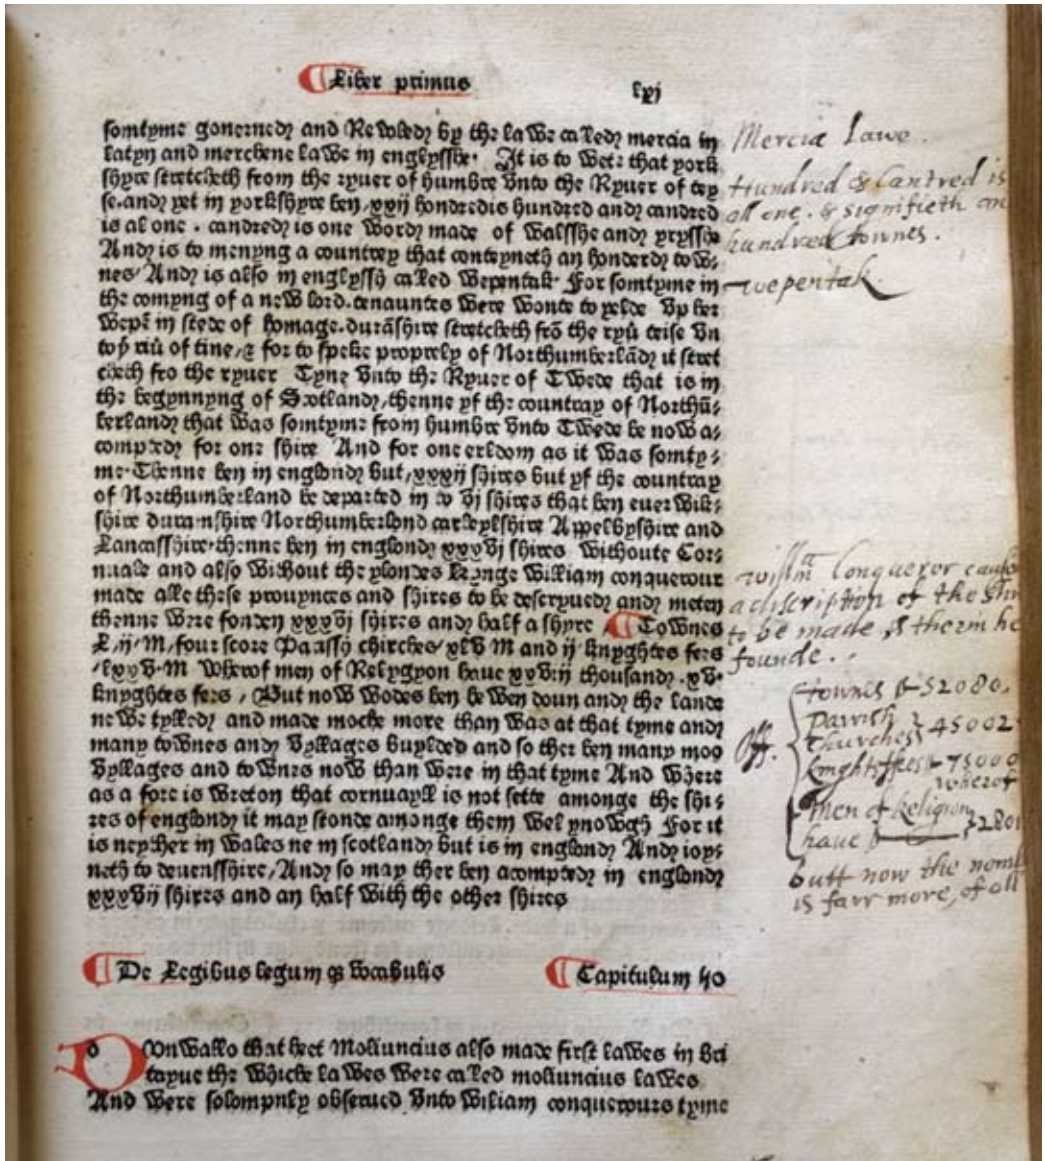 Liber primus lxj
somtyme gouerned and Rewled by the lawe called mercia in
latyn and merchene lawe in englysshe. It is to wete that york
shyre stretcheth from the ryuer of humbre vnto the Ryuer of tey
se. and yet in yorkshyre ben, xxij hondredis hundred and candred
is al one. candred is one word made of walsshe and yrysshe
And is to menyng a countrey that conteyneth an honderd tow-
nes, And is also in englyssh called wepentak. For somtyme in
the comyng of a new lord. tenauntes were wonte to yelde vp her
wepē in stede of homage. durāshire stretcheth frō the ryū teise vn
to yͤ riū of tine, & for to speke proprely of Northumberlād it stret
cheth fro the ryuer Tyne vnto the Ryuer of Twede that is in
the begynnyng of Scotland, thenne yf the countray of Northū-
berland that was somtyme from humbre vnto Twede be now a-
compted for one shire And for one erldom as it was somty-
me. Thenne ben in englond but, xxxij shires but yf the countray
of Northumberland be departed in to vj shires that ben euerwik-
shire duramshire Northumberlond carleylshire Appelbyshire and
Lancasshire. thenne ben in englond xxxvj shires withoute Cor-
nuale and also without the ylondes Kynge william conquerour
made alle these prouynces and shires to be descryued and meten
thenne were fonden xxxvj shires and half a shyre, Townes
L, ij, M, four score Parassh chirches, xlv M and ij, knyghtes fees
, lxxv. M wherof men of Relygyon haue xxviij thousand. xv.
knyghtes fees, But now wodes ben hewen doun and the lande
newe tylled and made moche more than was at that tyme and
many townes and vyllages buylded and so ther ben many moo
vyllages and townes now than were in that tyme And where
as a fore is wreton that cornuayll is not sette amonge the shi-
res of englond it may stonde amonge them wel ynowgh For it
is neyther in wales ne in scotland but is in englond And ioy-
neth to deuensshire, And so may ther ben acompted in englond
xxxvij shires and an half with the other shires
De Legibus legum qȝ vocabulis Capitulum 40
DOnwallo that heet Moliuncius also made first lawes in bri
tayne the whiche lawes were called moliuncius lawes
And were solompnly obserued vnto wiliam conquerours tyme
Mercia Lawe.
Hundred & Cantred is
all one. & signifieth an
hundred townes.
wepentak.
willm Conqueror caused
a discription of the Shir
to be made, & therin he
founde.
townes 52080.
Parrish
Churches 45002
knights fees 75000
wherof
men of Religion
haue 2801
butt now the nomb
is farr more, of all